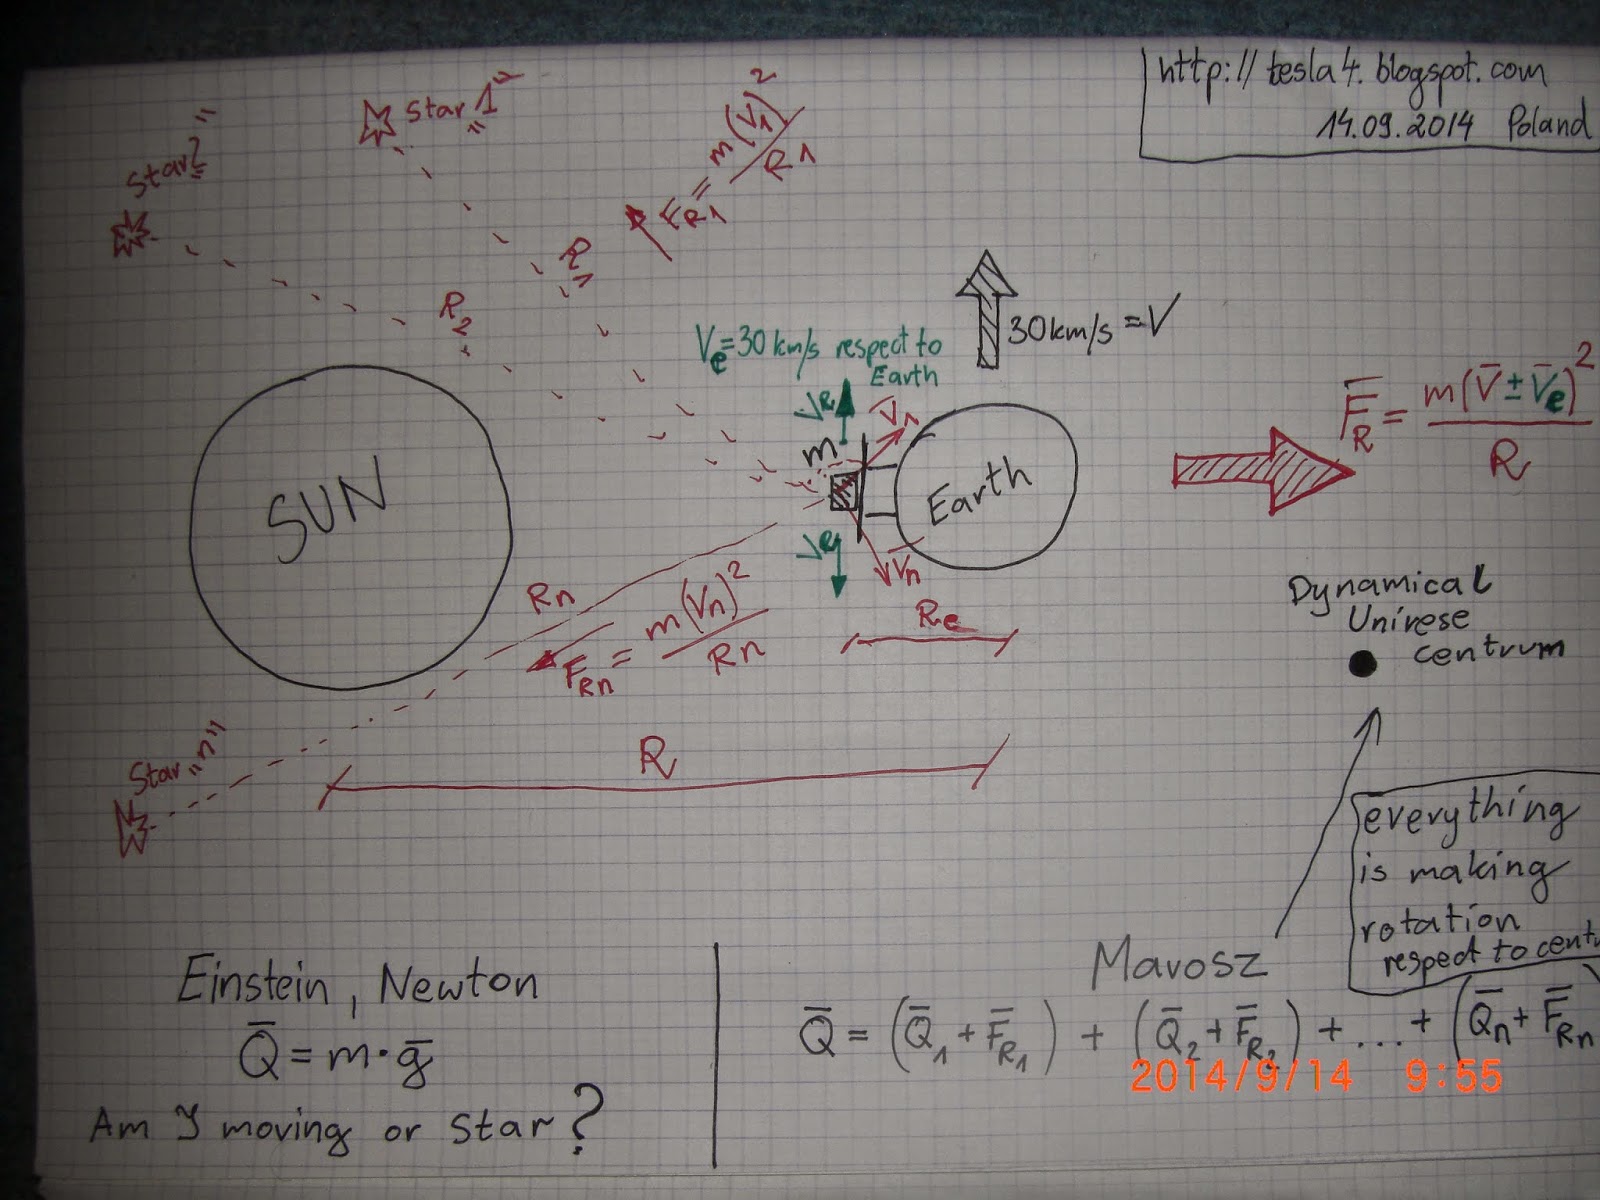 http://tesla4.blogspot.com
14.09.2014 Poland
Star 1"
Star 2"
F_R1 = m(V1)^2 / R1
R
R2
30 km/s = V
Ve = 30 km/s respect to
Earth
VR
V1
m
F_R = m(V ± Ve)^2 / R
SUN
Earth
VR
Vn
Rn
F_Rn = m(Vn)^2 / Rn
Re
Dynamical
Univese
centrum
Star „n"
R
everything
is making
rotation
respect to cent
Einstein, Newton
Q = m·g
Am I moving or star?
Mavosz
Q = (Q1 + F_R1) + (Q2 + F_R2) + ... + (Qn + F_Rn)
2014/9/14 9:55